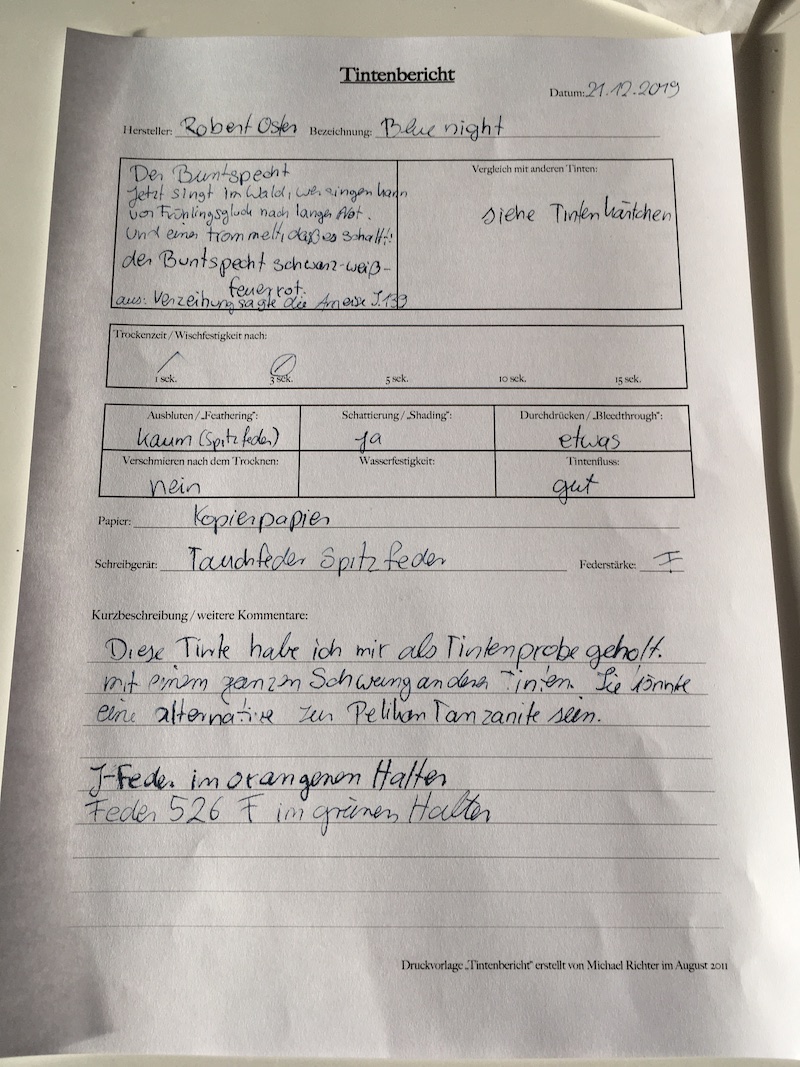 Tintenbericht
Datum: 21.12.2019
Hersteller: Robert Oster Bezeichnung: Blue night
Der Buntspecht
Jetzt singt im Wald, wer singen kann
vor Frühlingsglück nach langer Not.
Und einer trommelt, daß es schallt:
der Buntspecht schwarz-weiß-
feuerrot.
aus: Verzeihung sagte die Ameise S.139
Vergleich mit anderen Tinten:
siehe Tintenkärtchen
Trockenzeit / Wischfestigkeit nach:
1 sek. 3 sek. 5 sek. 10 sek. 15 sek.
Ausbluten / „Feathering": Schattierung / „Shading": Durchdrücken / „Bleedthrough":
kaum (Spitzfeder) ja etwas
Verschmieren nach dem Trocknen: Wasserfestigkeit: Tintenfluss:
nein gut
Papier: Kopierpapier
Schreibgerät: Tauchfeder Spitzfeder Federstärke: F
Kurzbeschreibung / weitere Kommentare:
Diese Tinte habe ich mir als Tintenprobe geholt.
mit einem ganzen Schwung anderer Tinten. Sie könnte
eine alternative zur Pelikan Tanzanite sein.
J-Feder im orangenen Halter
Feder 526 F im grünen Halter
Druckvorlage „Tintenbericht" erstellt von Michael Richter im August 2011